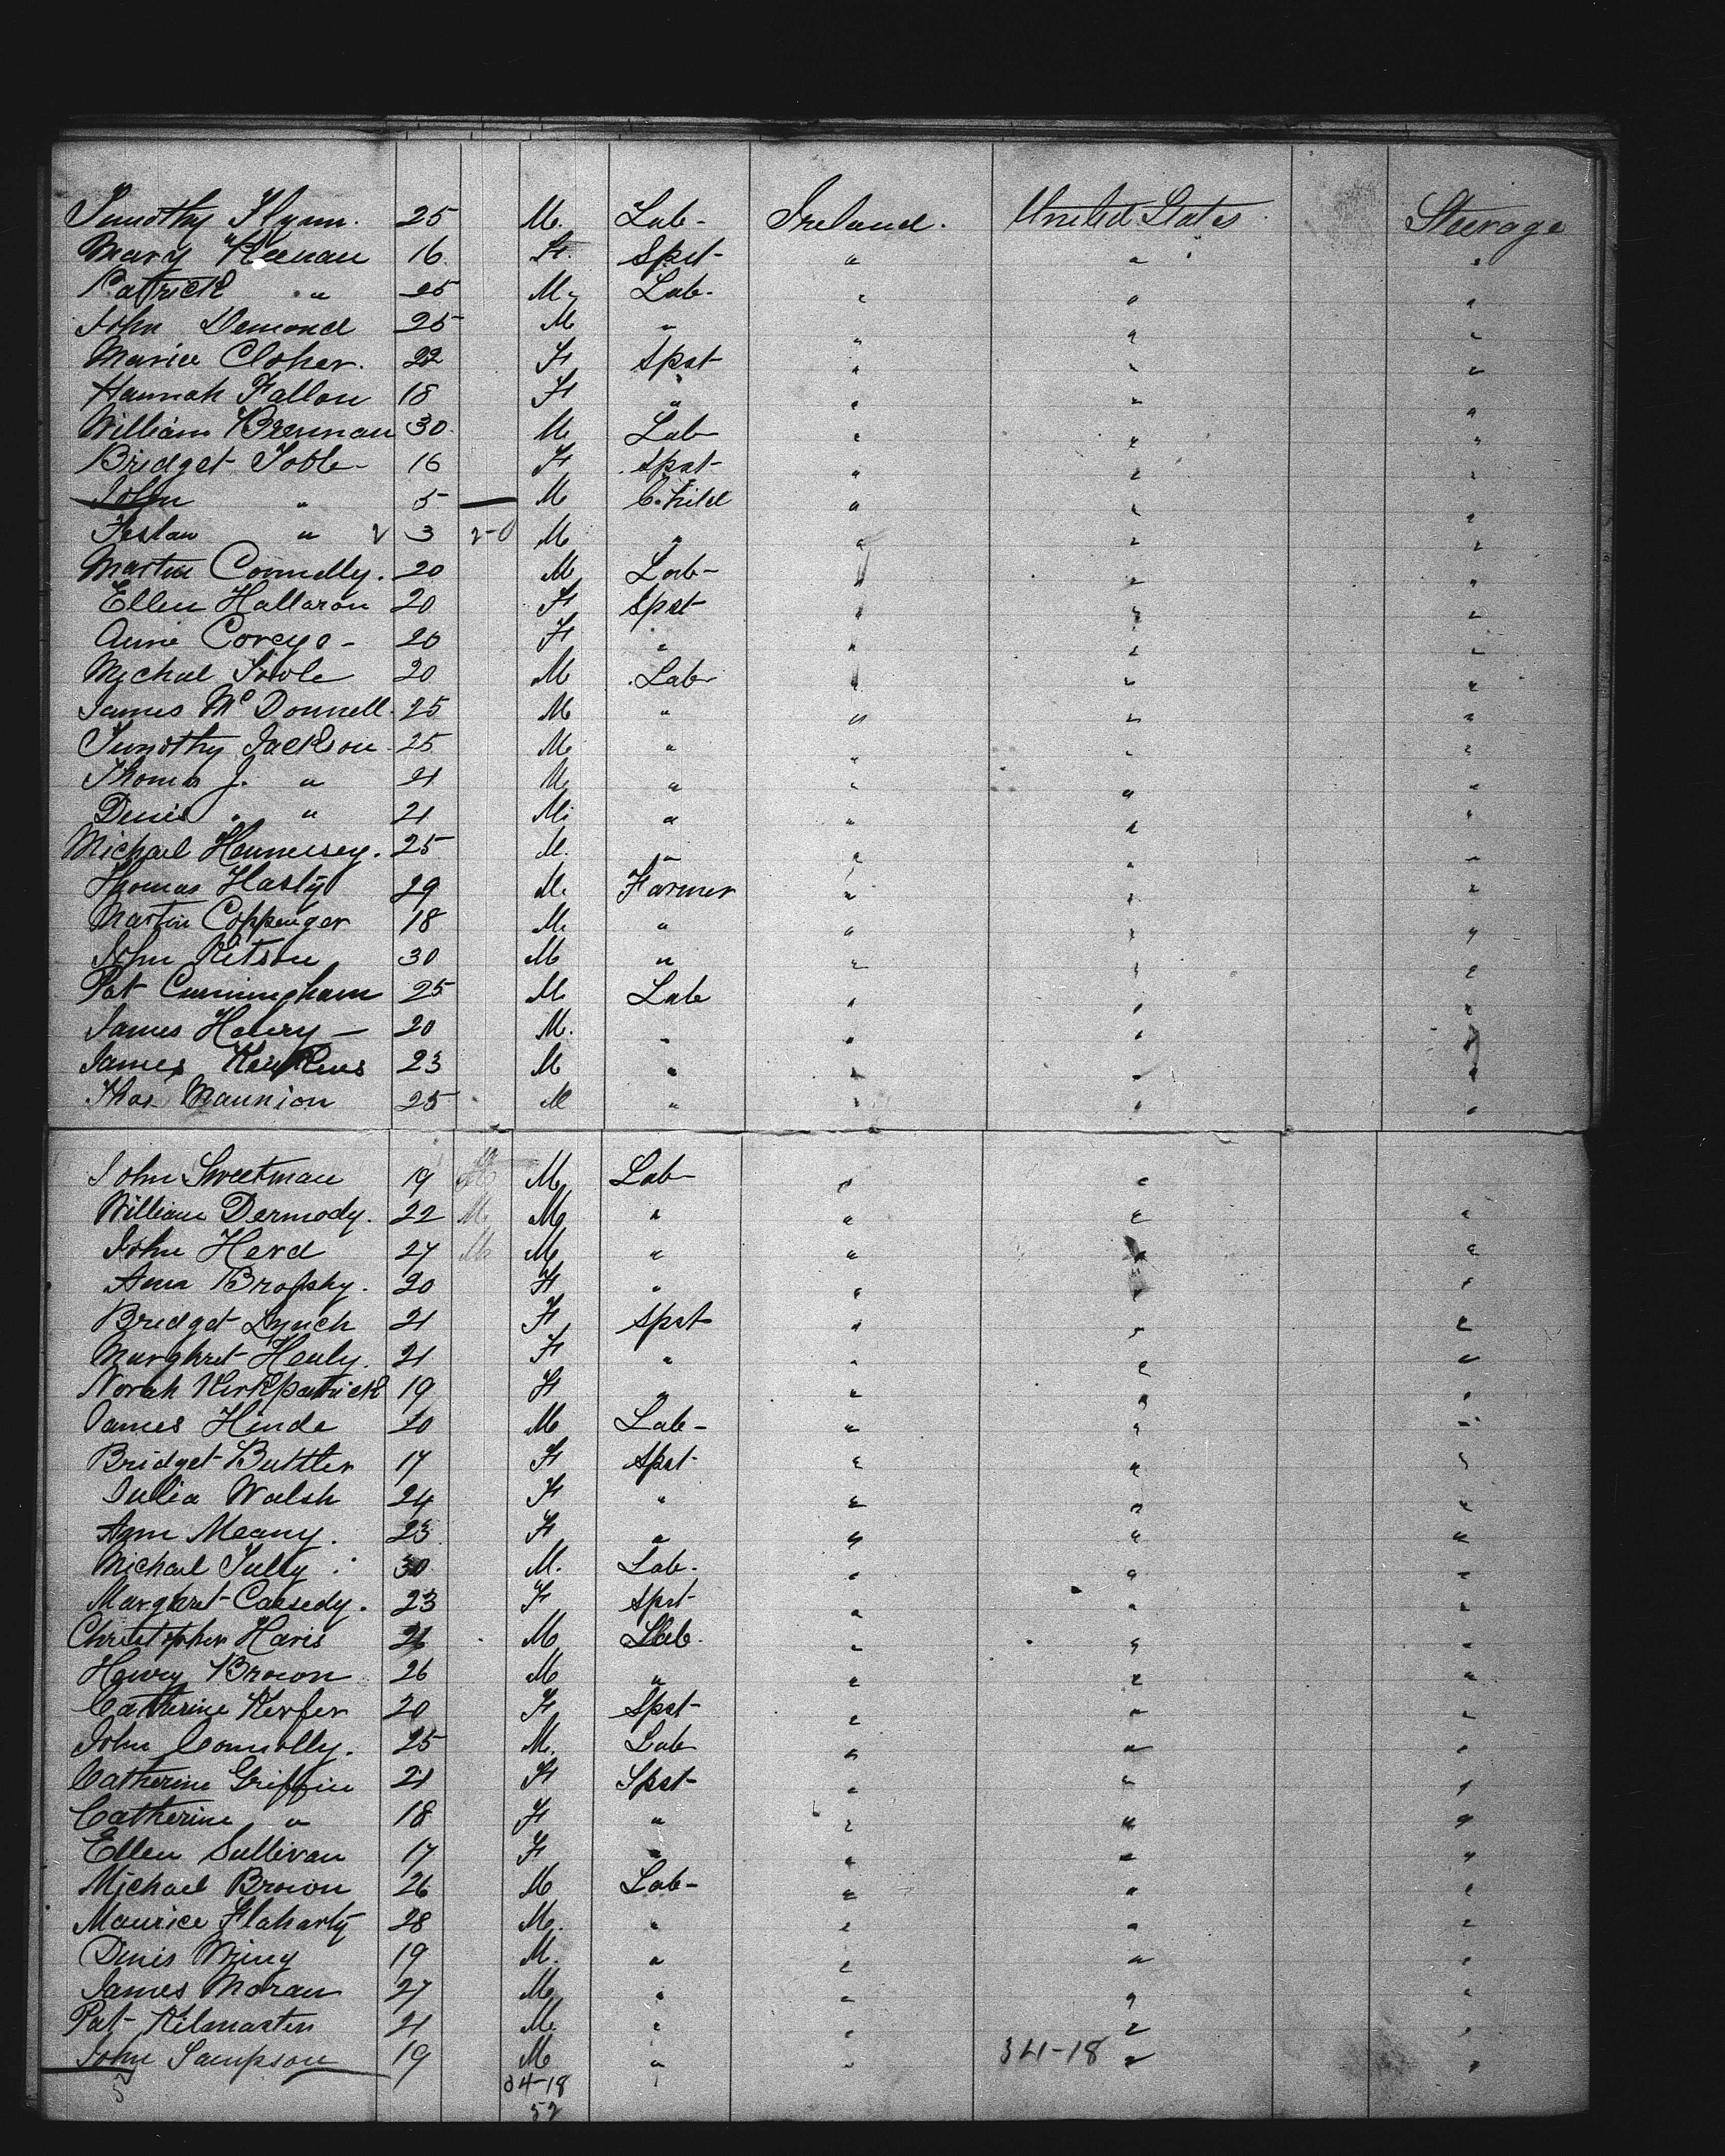 Timothy Flynn. 25 M. Lab- Ireland. United States Steerage
Mary Keenan 16 F. Spst- " " "
Patrick " 25 M. Lab- " " "
John Demond 25 M " " " "
Maria Cloher. 22 F Spst " " "
Hannah Fallon 18 F " " " "
William Brennan 30 M Lab " " "
Bridget Toole- 16 F Spst- " " "
John " 5 — M Child " " "
" 3 2-0 M " " " "
Martin Connelly. 20 M Lab- " " "
Ellen Hallaron 20 F Spst " " "
Anne 20 F " " " "
Michael Toole 20 M Lab " " "
James McDonnell 25 M " " " "
Timothy Jackson 25 M " " " "
Thomas J. " 21 M " " " "
Denis " 21 M " " " "
Michael Hennessey. 25 M. " " " "
Thomas Hasty 29 M. Farmer " " "
Martin Coppenger 18 M. " " " "
John Kitson 30 M " " " "
Pat Cunningham 25 M Lab " " "
James Henry- 20 M. " " " "
James 23 M " " " "
Thos Mannion 25 M " " " "
John Sweetman 19 M Lab- " "
William Dermody. 22 M M " " " "
John Herd 27 M M " " " "
Ann Brophy. 20 F " " " "
Bridget Lynch 21 F Spst " " "
Marghret Healy. 21 F " " " "
Norah Kirkpatrick 19 F " " " "
James Hinde 20 M Lab- " " "
Bridget Buttler 17 F Spst- " " "
Julia Walsh 24 F " " " "
Ann Meany. 23 F " " " "
Michael Tully 30 M. Lab- " " "
Marghret Cassedy. 23 F Spst- " " "
Christopher Haris 26 M Lab. " " "
Henry Brown 26 M " " " "
Catherine 20 F Spst- " " "
John Connolly. 25 M. Lab " " "
Catherine Griffin 21 F Spst- " " "
Catherine " 18 F " " " "
Ellen Sullivan 17 F " " " "
Michael Brown 26 M Lab- " " "
Maurice Flaharty 28 M. " " " "
Denis 19 M. " " " "
James Moran 27 M. " " " "
Pat Kilmartin 21 M. " " " "
John Sampson 19 M " " 34-18 " "
52 34-18
52